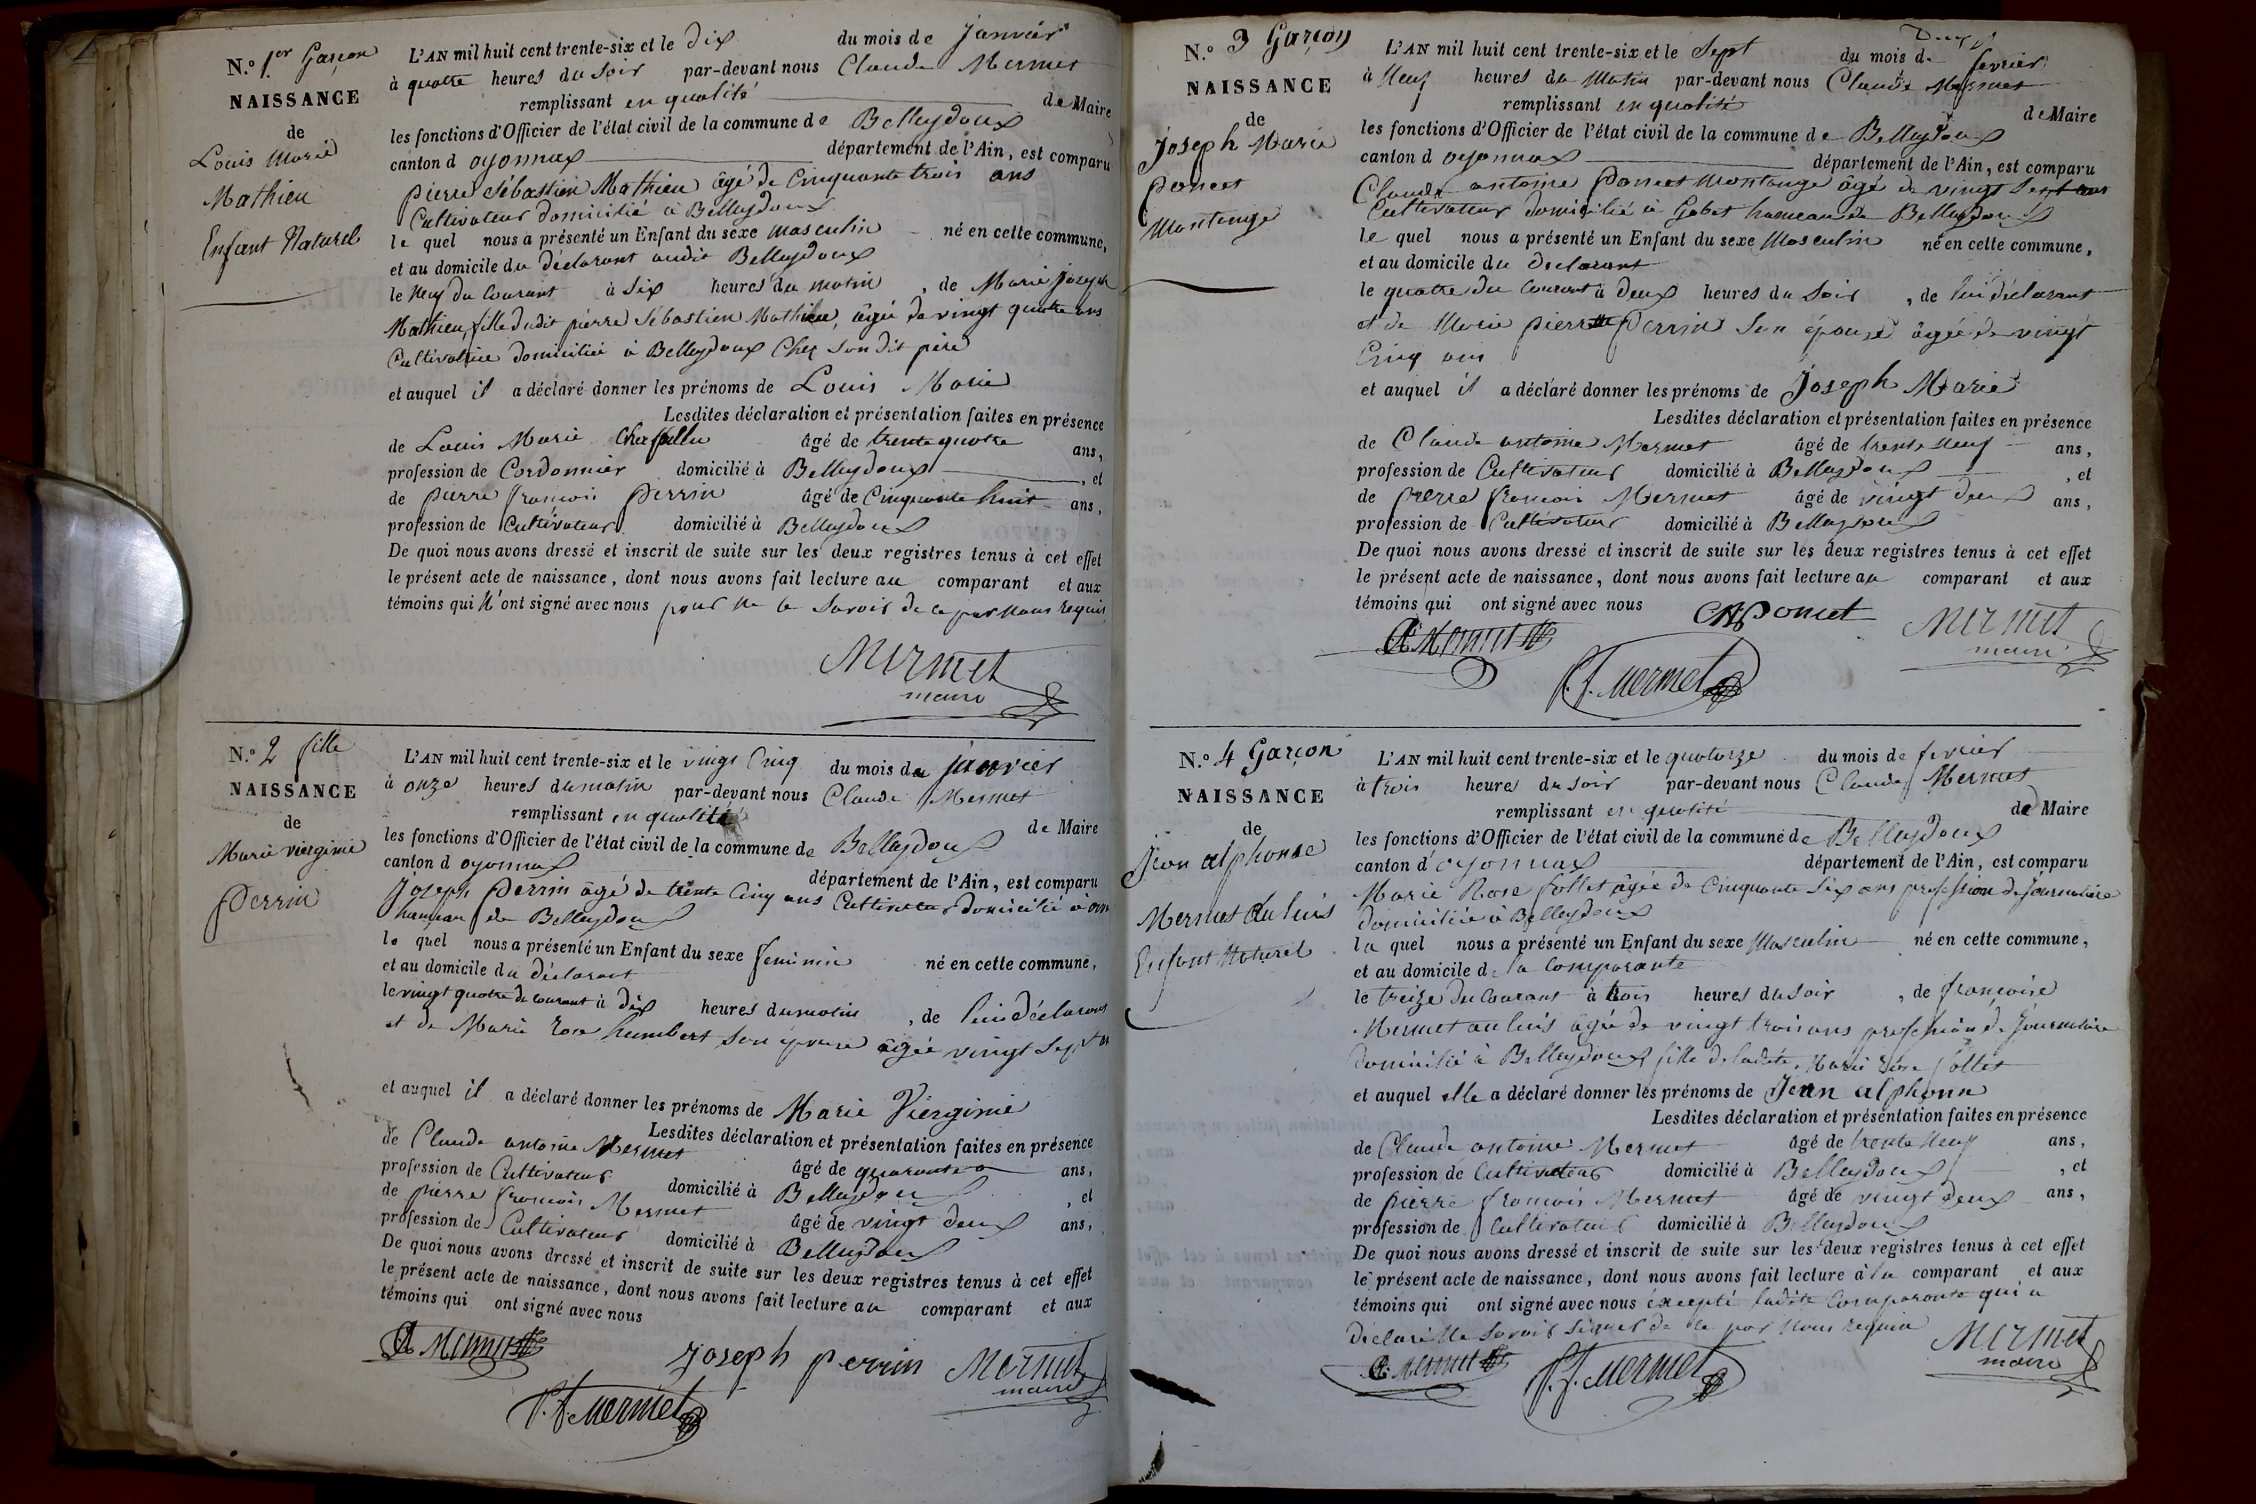 N.º 1er Garçon
NAISSANCE
de
Louis Marie
Mathieu
Enfant Naturel
L'AN mil huit cent trente-six et le dix du mois de Janvier
à quatre heures du Soir par-devant nous Claude Mermet
remplissant en qualité de Maire
les fonctions d'Officier de l'état civil de la commune de Belleydoux
canton d oyonnax département de l'Ain, est comparu
pierre Sébastien Mathieu âgé de Cinquante trois ans
Cultivateur domicilié à Belleydoux
le quel nous a présenté un Enfant du sexe masculin né en cette commune,
et au domicile du déclarant audit Belleydoux
le Neuf du Courant à Six heures du matin , de Marie Joseph
Mathieu, fille dudit pierre Sébastien Mathieu, âgée de vingt quatre ans
Cultivatrice domiciliée à Belleydoux Chez Son dit père
et auquel il a déclaré donner les prénoms de Louis Marie
Lesdites déclaration et présentation faites en présence
de Louis Marie âgé de trente quatre ans,
profession de Cordonnier domicilié à Belleydoux , et
de pierre françois Perrin âgé de Cinquante huit ans,
profession de Cultivateur domicilié à Belleydoux
De quoi nous avons dressé et inscrit de suite sur les deux registres tenus à cet effet
le présent acte de naissance, dont nous avons fait lecture au comparant et aux
témoins qui N'ont signé avec nous pour ne le Savoir de ce par Nous Requis
Mermet
maire
N.º 2 fille
NAISSANCE
de
Marie viergine
Perrin
L'AN mil huit cent trente-six et le vingt Cinq du mois de janvier
à onze heures du matin par-devant nous Claude Mermet
remplissant en qualité de Maire
les fonctions d'Officier de l'état civil de la commune de Belleydoux
canton d oyonnax département de l'Ain, est comparu
Joseph Perrin âgé de trente Cinq ans Cultivateur domicilié à
hameau de Belleydoux
le quel nous a présenté un Enfant du sexe feminin né en cette commune,
et au domicile du déclarant
le vingt quatre du courant à dix heures du matin , de lui déclarant
et de Marie rose humbert Son épouse âgée vingt Sept
et auquel il a déclaré donner les prénoms de Marie Viergine
Lesdites déclaration et présentation faites en présence
de Claude antoine Mermet âgé de quarante ans,
profession de Cultivateur domicilié à Belleydoux , et
de pierre françois Mermet âgé de vingt deux ans,
profession de Cultivateur domicilié à Belleydoux
De quoi nous avons dressé et inscrit de suite sur les deux registres tenus à cet effet
le présent acte de naissance, dont nous avons fait lecture au comparant et aux
témoins qui ont signé avec nous
Mermet
joseph perrin Mermet
maire
P.f. mermet
N.º 3 Garçon
NAISSANCE
de
Joseph Marie
Poncet
Montange
L'AN mil huit cent trente-six et le Sept du mois de fevrier
à Neuf heures du Matin par-devant nous Claude Mermet
remplissant en qualité de Maire
les fonctions d'Officier de l'état civil de la commune de Belleydoux
canton d oyonnax département de l'Ain, est comparu
Claude antoine Poncet Montange âgé de vingt Sept ans
Cultivateur domicilié à Gobet hameau de Belleydoux
le quel nous a présenté un Enfant du sexe Masculin né en cette commune,
et au domicile du déclarant
le quatre du Courant à deux heures du Soir , de lui déclarant
et de Marie pierrette Perrin Son épouse âgée de vingt
Cinq ans
et auquel il a déclaré donner les prénoms de Joseph Marie
Lesdites déclaration et présentation faites en présence
de Claude antoine Mermet âgé de trente Neuf ans,
profession de Cultivateur domicilié à Belleydoux , et
de pierre françois Mermet âgé de vingt deux ans,
profession de Cultivateur domicilié à Belleydoux
De quoi nous avons dressé et inscrit de suite sur les deux registres tenus à cet effet
le présent acte de naissance, dont nous avons fait lecture au comparant et aux
témoins qui ont signé avec nous
Poncet Mermet
maire
Mermet
P.f. mermet
N.º 4 Garçon
NAISSANCE
de
Jean alphonse
Mermet au luis
Enfant Naturel
L'AN mil huit cent trente-six et le quatorze du mois de fevrier
à trois heures du Soir par-devant nous Claude Mermet
remplissant en qualité de Maire
les fonctions d'Officier de l'état civil de la commune de Belleydoux
canton d'oyonnax département de l'Ain, est comparu
Marie Rose follet âgée de Cinquante Six ans profession de Journalière
domiciliée à Belleydoux
la quel nous a présenté un Enfant du sexe Masculin né en cette commune,
et au domicile de la Comparante
le treize du Courant à trois heures du Soir , de françoise
Mermet au luis âgée de vingt trois ans profession de Journalière
domicilié à Belleydoux fille de ladite Marie Rose follet
et auquel elle a déclaré donner les prénoms de Jean alphonse
Lesdites déclaration et présentation faites en présence
de Claude antoine Mermet âgé de trente Neuf ans,
profession de Cultivateur domicilié à Belleydoux , et
de pierre françois Mermet âgé de vingt deux ans,
profession de Cultivateur domicilié à Belleydoux
De quoi nous avons dressé et inscrit de suite sur les deux registres tenus à cet effet
le présent acte de naissance, dont nous avons fait lecture à la comparant et aux
témoins qui ont signé avec nous éxcepté ladite Comparante qui a
déclaré Ne Savoir Signer de ce par Nous Requise
Mermet
maire
Mermet
P.f. mermet